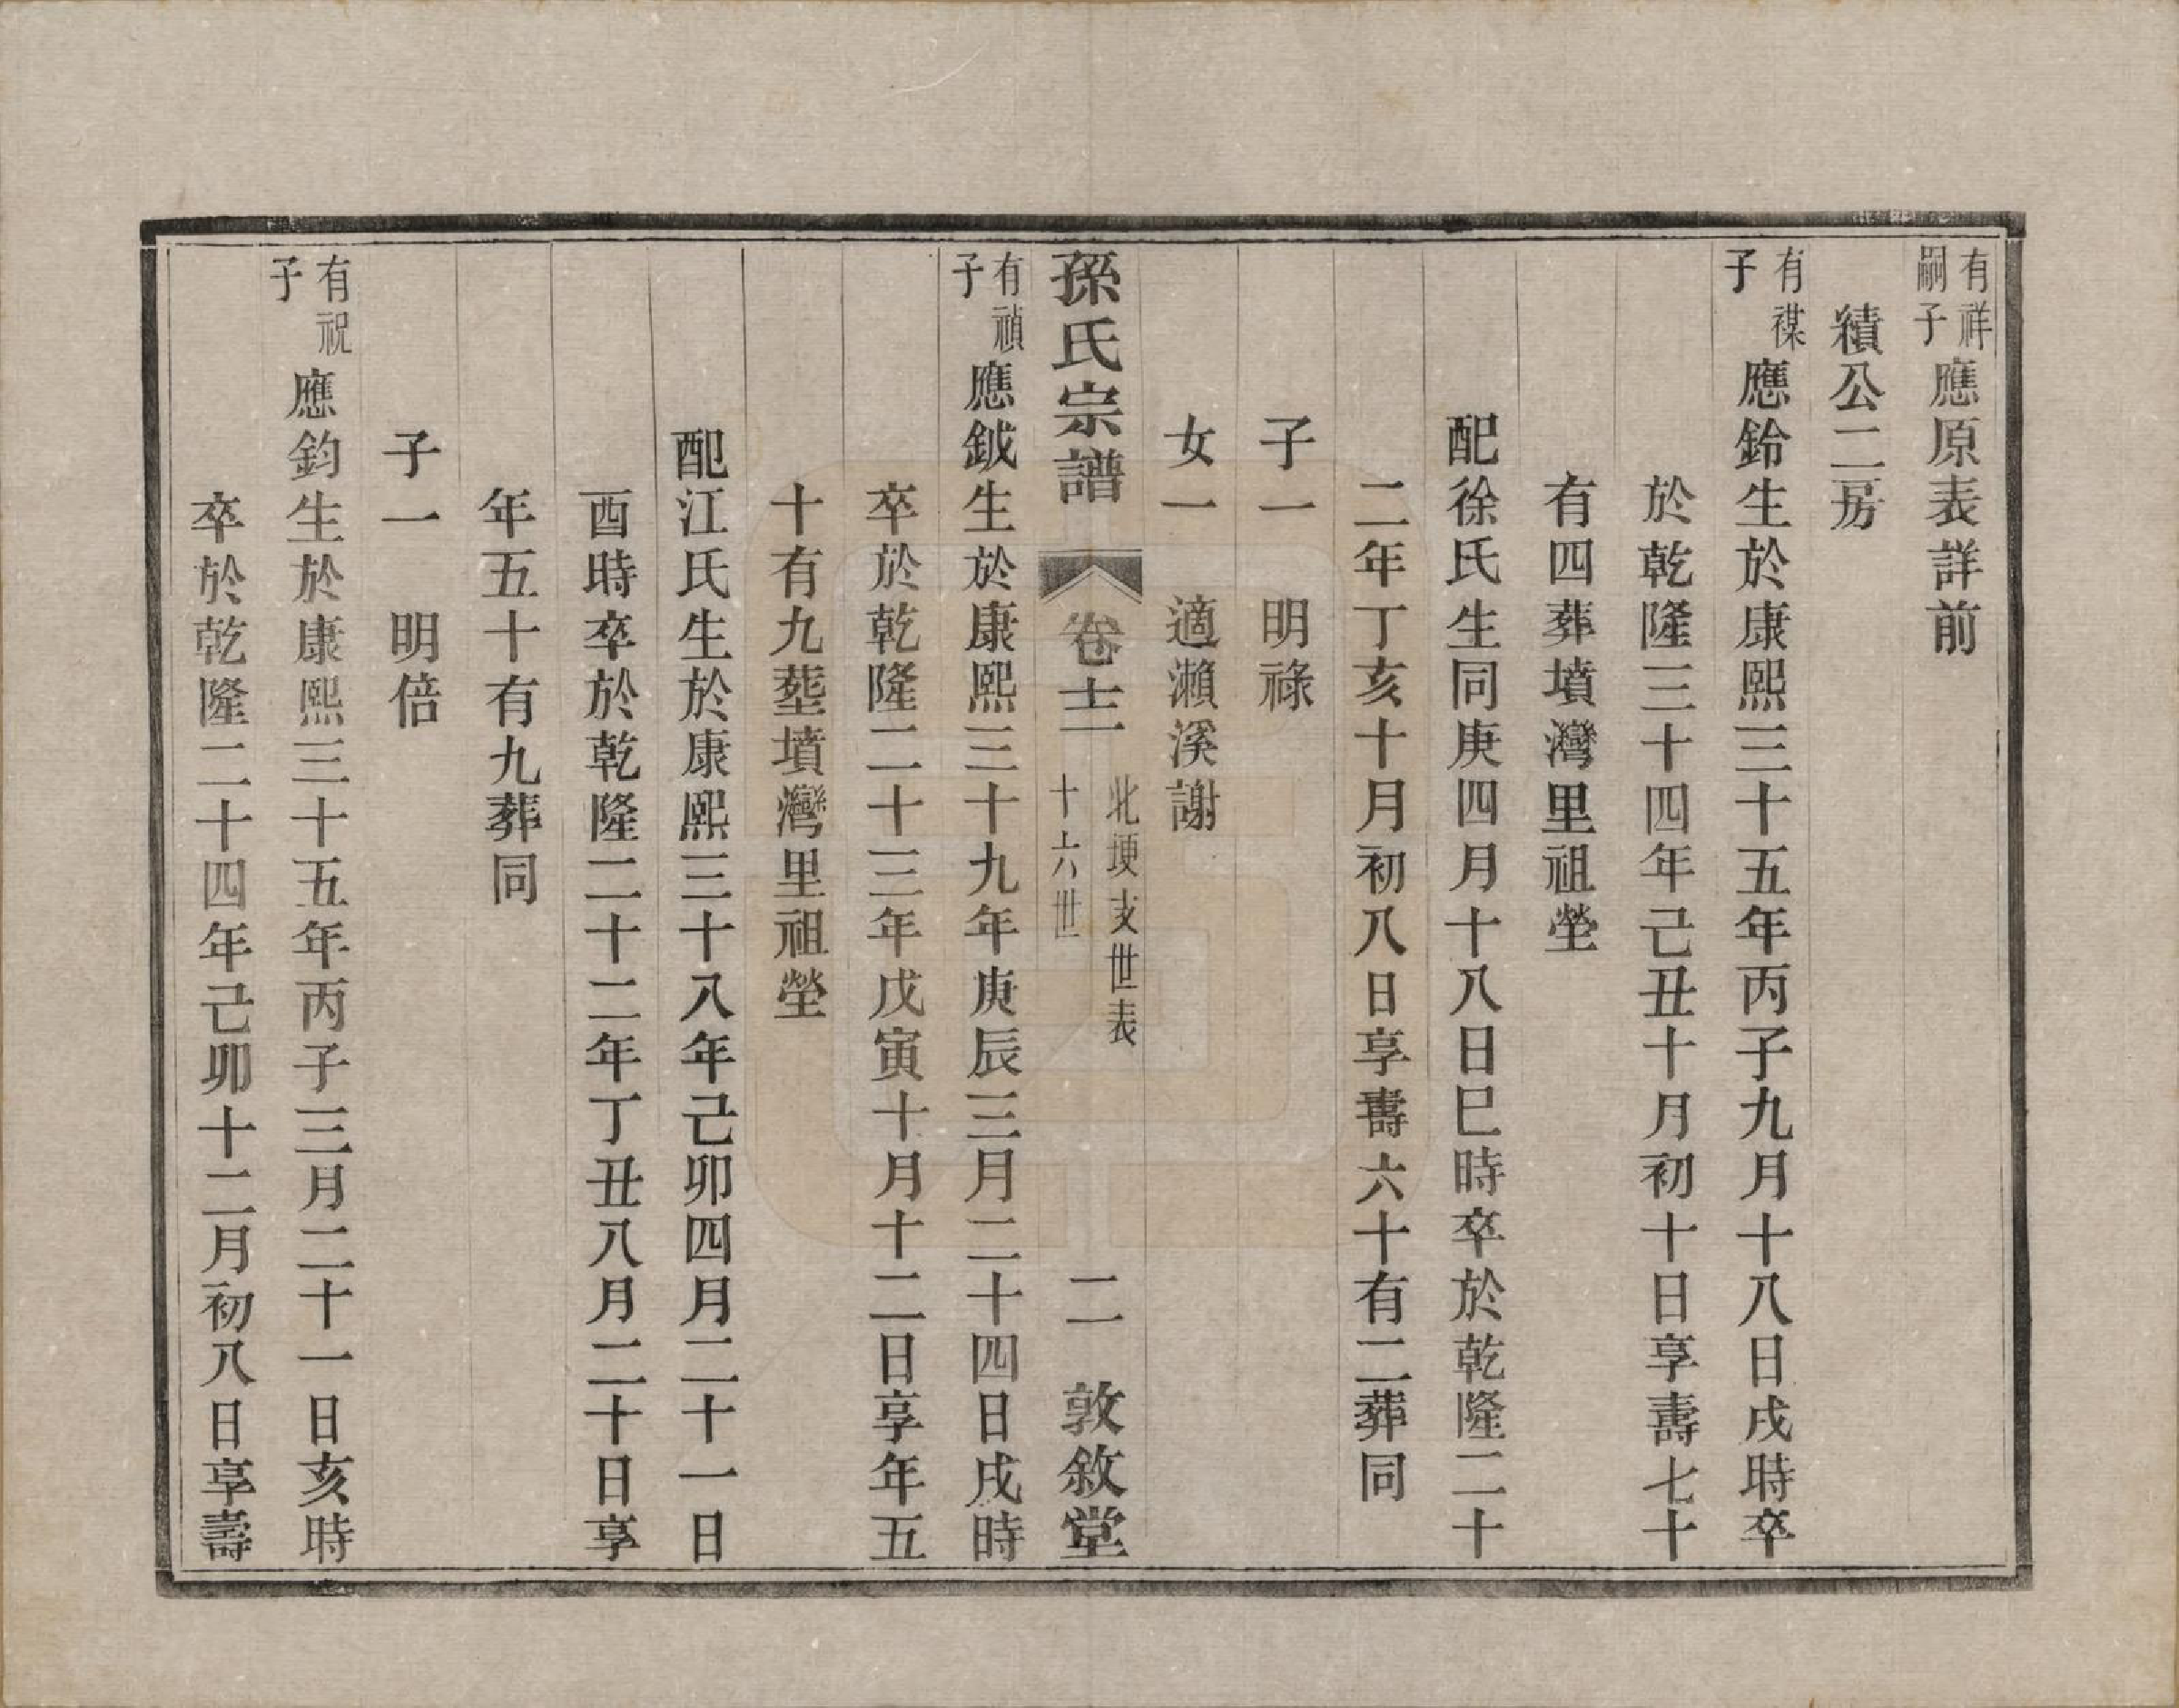 有祥嗣子應原表詳前
績公二房
有禖子應鈴生於康熙三十五年丙子九月十八日戌時卒
於乾隆三十四年己丑十月初十日享壽七十
有四葬墳灣里祖塋
配徐氏生同庚四月十八日巳時卒於乾隆二十
二年丁亥十月初八日享壽六十有二葬同
子一　明祿
女一　適瀨溪謝
孫氏宗譜　卷十二　北埂支世表　十六世　二　敦敘堂
有禎子應鉞生於康熙三十九年庚辰三月二十四日戌時
卒於乾隆二十三年戊寅十月十二日享年五
十有九塟墳灣里祖塋
配江氏生於康熙三十八年己卯四月二十一日
酉時卒於乾隆二十二年丁丑八月二十日享
年五十有九葬同
子一　明倍
有祝子應鈞生於康熙三十五年丙子三月二十一日亥時
卒於乾隆二十四年己卯十二月初八日享壽